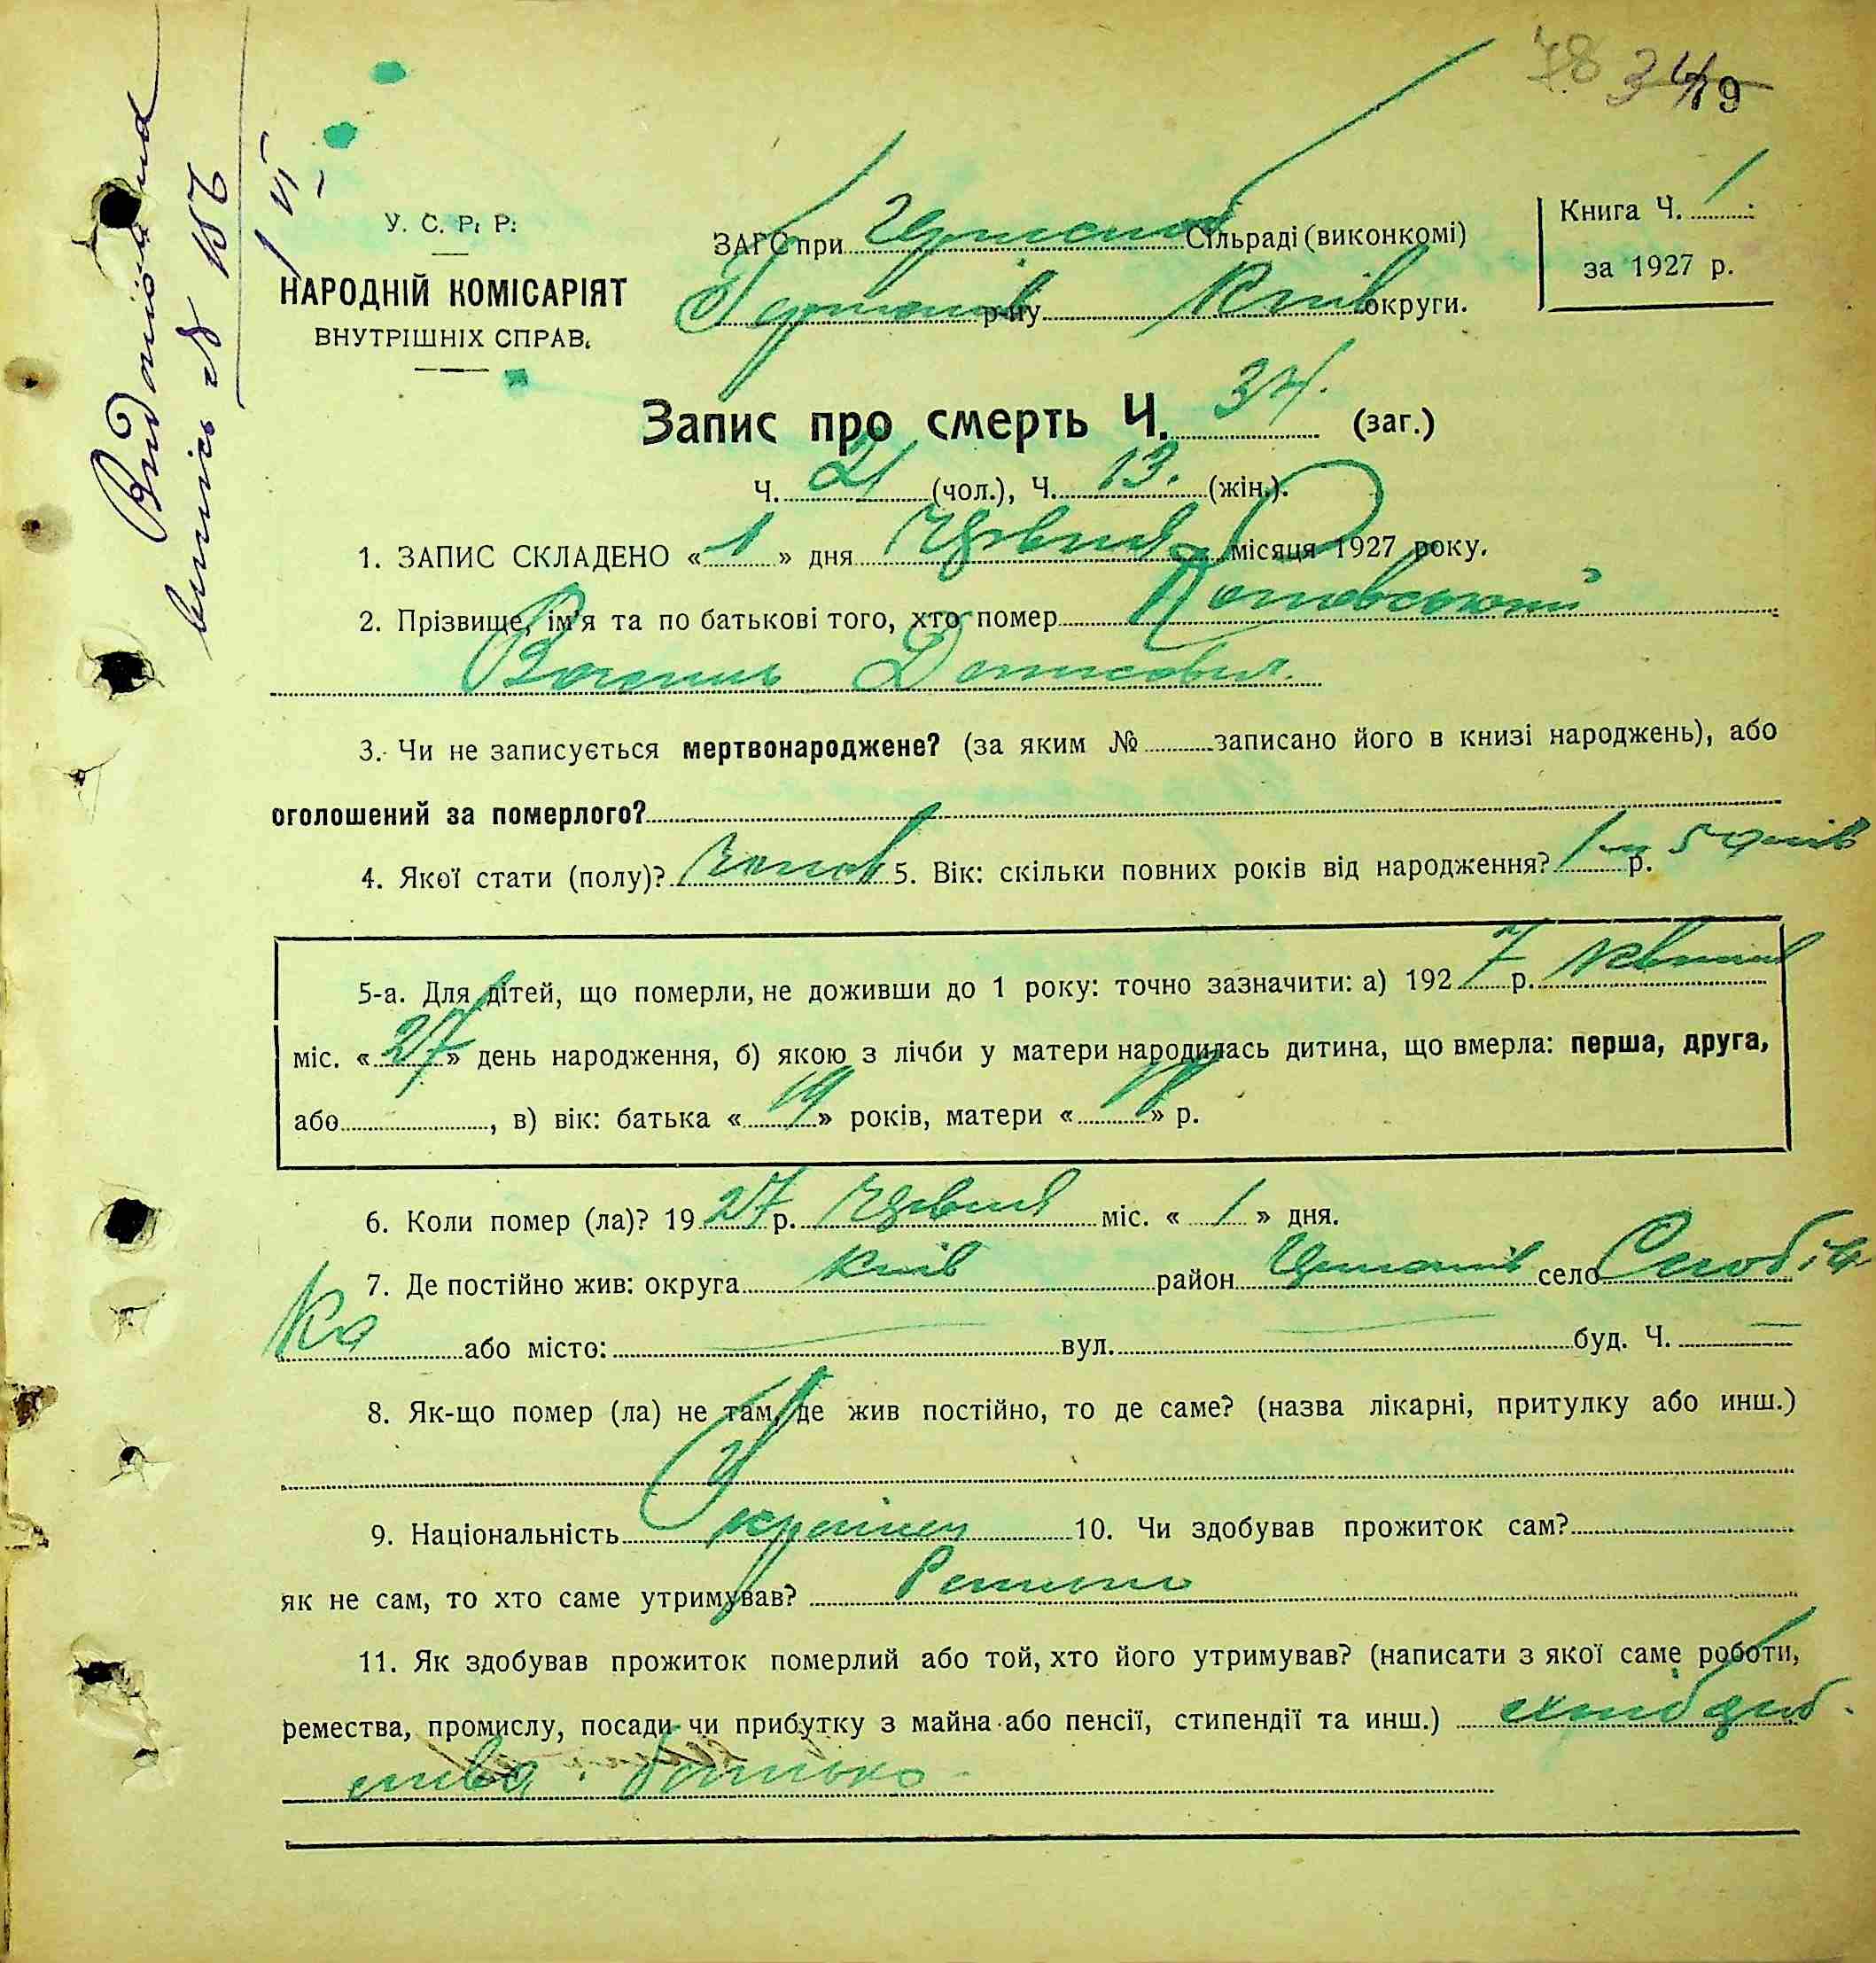 78 34 79
Видано
випись № 186
1/VI
У. С. Р. Р.
НАРОДНІЙ КОМІСАРІЯТ
ВНУТРІШНІХ СПРАВ.
ЗАГС при Сільраді (виконкомі)
р-ну Київ округи.
Книга Ч. 1
за 1927 р.
Запис про смерть Ч. 34. (заг.)
Ч. 21 (чол.), Ч. 13. (жін.).
1. ЗАПИС СКЛАДЕНО «1» дня Червня місяця 1927 року.
2. Прізвище, ім'я та по батькові того, хто помер
Василь Денисович.
3. Чи не записується мертвонароджене? (за яким № записано його в книзі народжень), або
оголошений за померлого?
4. Якої стати (полу)? чолов 5. Вік: скільки повних років від народження? 1 м 5 днів р.
5-а. Для дітей, що померли, не доживши до 1 року: точно зазначити: а) 1927 р. квітня
міс. «27» день народження, б) якою з лічби у матери народилась дитина, що вмерла: перша, друга,
або , в) вік: батька «19» років, матери «18» р.
6. Коли помер (ла)? 1927 р. Червня міс. «1» дня.
7. Де постійно жив: округа Київ район село Слобід
ка або місто: — вул. — буд. Ч. —
8. Як-що помер (ла) не там, де жив постійно, то де саме? (назва лікарні, притулку або инш.)
9. Національність Україн 10. Чи здобував прожиток сам?
як не сам, то хто саме утримував?
11. Як здобував прожиток померлий або той, хто його утримував? (написати з якої саме роботи,
ремества, промислу, посади чи прибутку з майна або пенсії, стипендії та инш.) хлібороб
батько